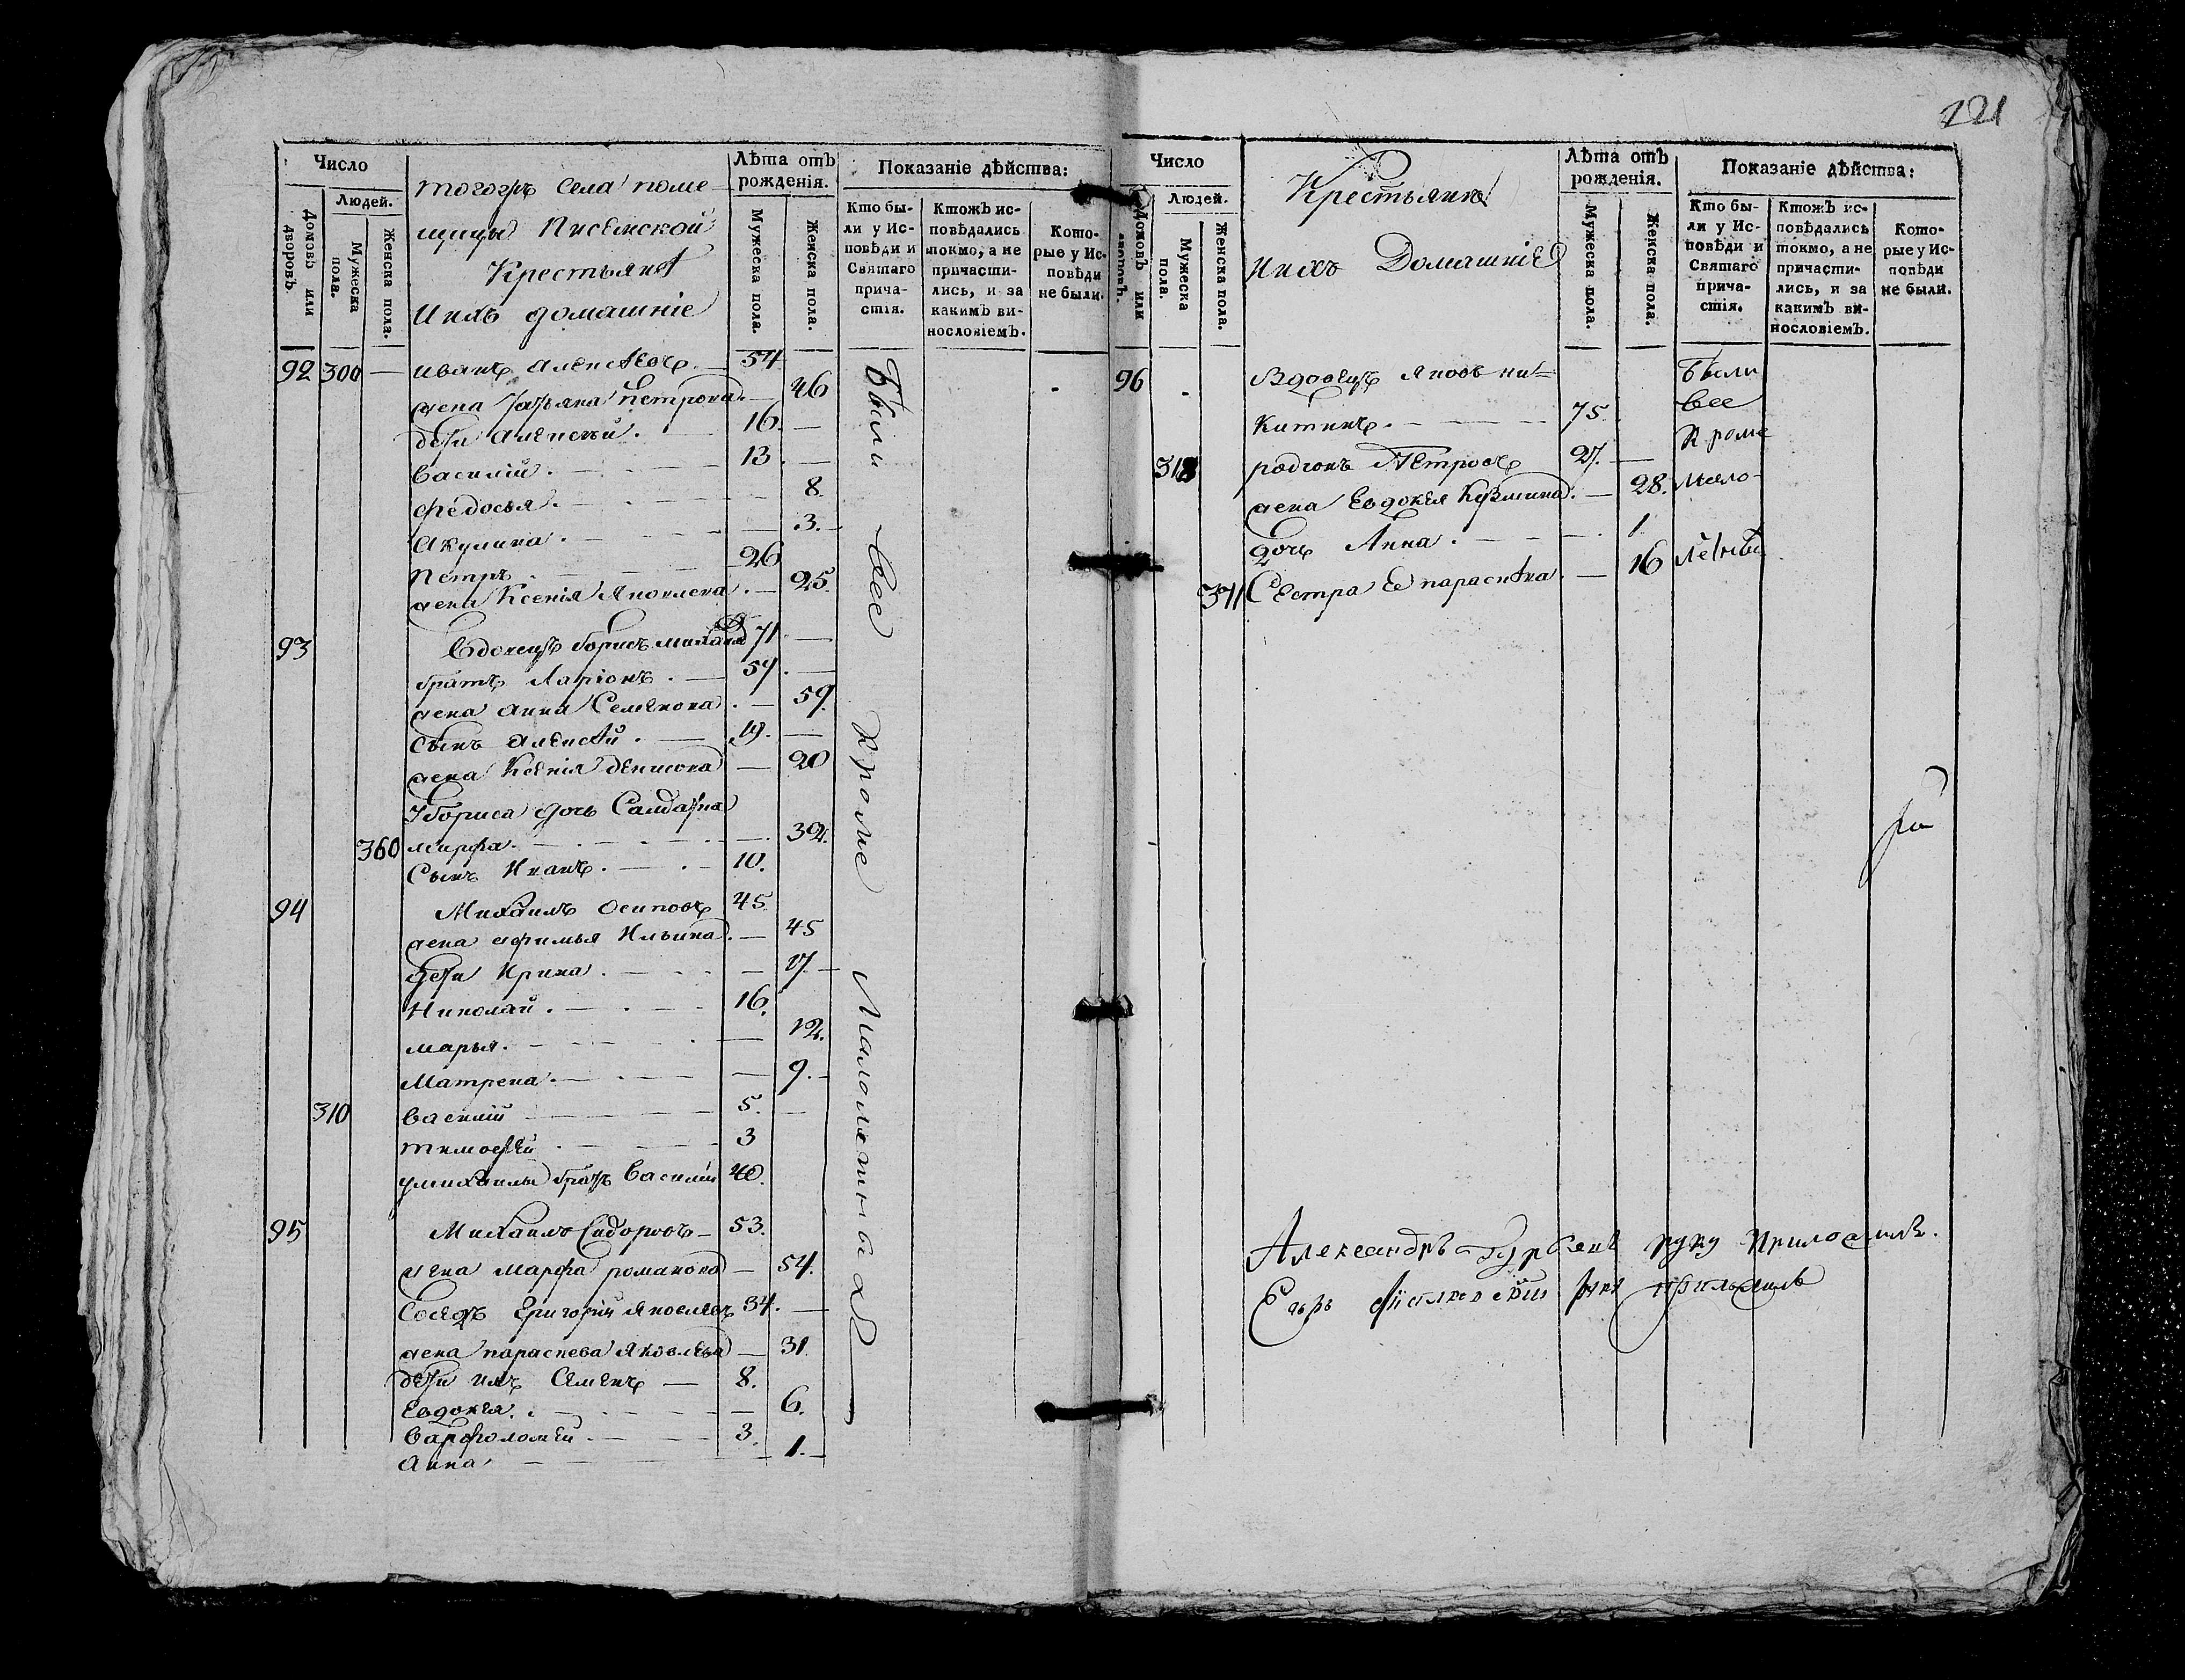 221
Число
Людей.
Домовъ или дворовъ.
Мужеска пола.
Женска пола.
тогожъ села поме-
щицы Писемской
Крестьяне
и ихъ домашніе
Лѣта отъ рожденія.
Мужеска пола.
Женска пола.
Показаніе дѣйства:
Кто бы-
ли у Ис-
повѣди и
Святаго
прича-
стія.
Ктожъ ис-
повѣдались
токмо, а не
причасти-
лись, и за
какимъ ви-
нословіемъ.
Кото-
рые у Ис-
повѣди
не были.
92 300 — иванъ алексѣевъ — 54
жена Татьяна Петрова — 46
дѣти алексѣй — 16 —
василій — 13 —
федосья — 8
Акулина — 3
Петръ — 26
жена Ксенія Яковлева — 25
93 вдовецъ борисъ 71 —
братъ Ларіонъ — 59 —
жена анна Семенова — 59
сынъ алексѣй — 19 —
жена Ксенія денисова — 20
У бориса дочь Салдатка
360 марфа — 32
Сынъ Иванъ — 10
94 Михаилъ осиповъ 45
жена афимья Ильина — 45
дѣти Ирина — 17
Николай — 16
марья — 12
Матрена — 9
310 василій — 5 —
тимофѣй — 3
у михаилы братъ василій 40
95 Михаилъ Сидоровъ — 53
жена марфа романова — 54
Сосѣдъ Григорій Яковлевъ 34 —
жена параскева Яковлева — 31
дѣти ихъ Семенъ — 8
Евдокія — 6
варфоломѣй — 3
анна — 1
Были все кроме малолетныхъ
Число
Людей.
Домовъ или дворовъ.
Мужеска пола.
Женска пола.
Крестьяне
и ихъ домашніе
Лѣта отъ рожденія.
Мужеска пола.
Женска пола.
Показаніе дѣйства:
Кто бы-
ли у Ис-
повѣди и
Святаго
прича-
стія.
Ктожъ ис-
повѣдались
токмо, а не
причасти-
лись, и за
какимъ ви-
нословіемъ.
Кото-
рые у Ис-
повѣди
не были.
96 Вдовецъ Яковъ ни= Были
китинъ — 75 все
318 родіонъ Петровъ 27 — кроме
жена Евдокея Кузмина — 28 мало-
дочь Анна — 1
371 Сестра Ее параскева — 16
Александръ руку приложилъ.